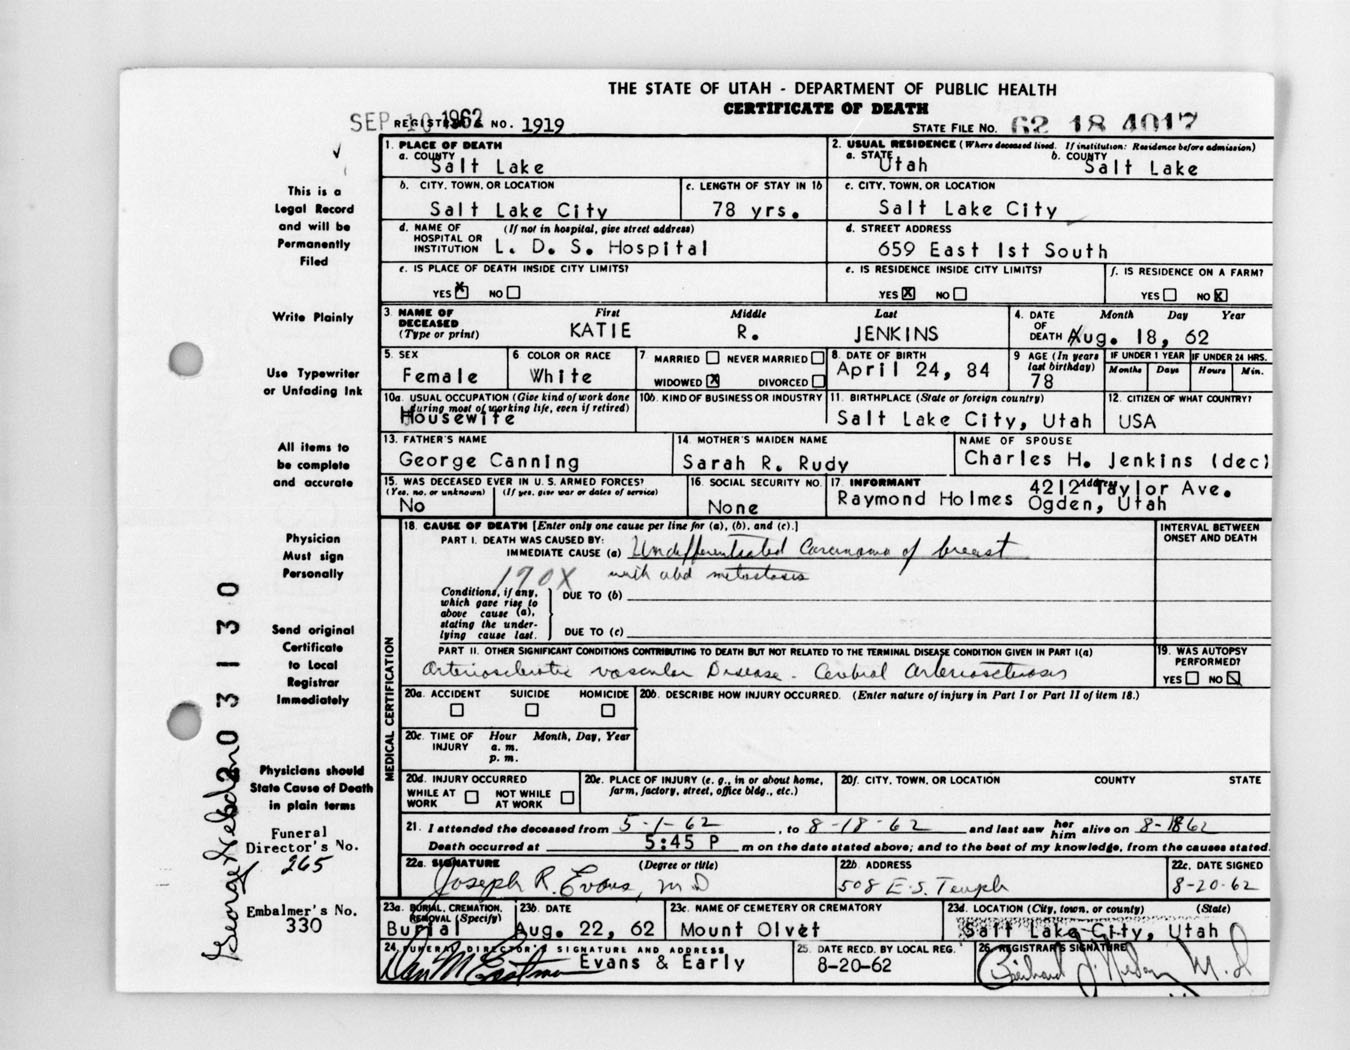 THE STATE OF UTAH - DEPARTMENT OF PUBLIC HEALTH
CERTIFICATE OF DEATH
SEP 10 1962
REGISTRAR'S NO. 1919
STATE FILE NO. 62 18 4017
1. PLACE OF DEATH
a. COUNTY
Salt Lake
2. USUAL RESIDENCE (Where deceased lived. If institution: Residence before admission)
a. STATE
Utah
b. COUNTY
Salt Lake
b. CITY, TOWN, OR LOCATION
Salt Lake City
c. LENGTH OF STAY IN 1b
78 yrs.
c. CITY, TOWN, OR LOCATION
Salt Lake City
d. NAME OF HOSPITAL OR INSTITUTION
(If not in hospital, give street address)
L. D. S. Hospital
d. STREET ADDRESS
659 East 1st South
e. IS PLACE OF DEATH INSIDE CITY LIMITS?
YES X NO
e. IS RESIDENCE INSIDE CITY LIMITS?
YES X NO
f. IS RESIDENCE ON A FARM?
YES NO X
3. NAME OF DECEASED
(Type or print)
First Middle Last
KATIE R. JENKINS
4. DATE OF DEATH
Month Day Year
Aug. 18, 62
5. SEX
Female
6 COLOR OR RACE
White
7 MARRIED NEVER MARRIED
WIDOWED X DIVORCED
8. DATE OF BIRTH
April 24, 84
9 AGE (In years last birthday)
78
IF UNDER 1 YEAR
Months Days
IF UNDER 24 HRS.
Hours Min.
10a. USUAL OCCUPATION (Give kind of work done during most of working life, even if retired)
Housewife
10b. KIND OF BUSINESS OR INDUSTRY
11. BIRTHPLACE (State or foreign country)
Salt Lake City, Utah
12. CITIZEN OF WHAT COUNTRY?
USA
13. FATHER'S NAME
George Canning
14. MOTHER'S MAIDEN NAME
Sarah R. Rudy
NAME OF SPOUSE
Charles H. Jenkins (dec)
15. WAS DECEASED EVER IN U. S. ARMED FORCES?
(Yes, no, or unknown) (If yes, give war or dates of service)
No
16. SOCIAL SECURITY NO.
None
17. INFORMANT Address
Raymond Holmes
4212 Taylor Ave.
Ogden, Utah
MEDICAL CERTIFICATION
18. CAUSE OF DEATH [Enter only one cause per line for (a), (b), and (c).]
INTERVAL BETWEEN ONSET AND DEATH
PART I. DEATH WAS CAUSED BY:
IMMEDIATE CAUSE (a) Undifferentiated Carcinoma of breast
170X with abd metastasis
Conditions, if any, which gave rise to above cause (a), stating the underlying cause last.
DUE TO (b)
DUE TO (c)
PART II. OTHER SIGNIFICANT CONDITIONS CONTRIBUTING TO DEATH BUT NOT RELATED TO THE TERMINAL DISEASE CONDITION GIVEN IN PART I(a)
Arteriosclerotic vascular Disease - Cerebral Arteriosclerosis
19. WAS AUTOPSY PERFORMED?
YES NO X
20a. ACCIDENT SUICIDE HOMICIDE
20b. DESCRIBE HOW INJURY OCCURRED. (Enter nature of injury in Part I or Part II of item 18.)
20c. TIME OF INJURY
Hour Month, Day, Year
a. m.
p. m.
20d. INJURY OCCURRED
WHILE AT WORK NOT WHILE AT WORK
20e. PLACE OF INJURY (e. g., in or about home, farm, factory, street, office bldg., etc.)
20f. CITY, TOWN, OR LOCATION COUNTY STATE
21. I attended the deceased from 5-1-62, to 8-18-62 and last saw her him alive on 8-1862
Death occurred at 5:45 P m on the date stated above; and to the best of my knowledge, from the causes stated.
22a. SIGNATURE (Degree or title)
Joseph R. Evans, M D
22b. ADDRESS
508 E. S. Temple
22c. DATE SIGNED
8-20-62
23a. BURIAL, CREMATION, REMOVAL (Specify)
Burial
23b. DATE
Aug. 22, 62
23c. NAME OF CEMETERY OR CREMATORY
Mount Olvet
23d. LOCATION (City, town, or county) (State)
Salt Lake City, Utah
24. FUNERAL DIRECTOR'S SIGNATURE AND ADDRESS
Evans & Early
25. DATE RECD. BY LOCAL REG.
8-20-62
26. REGISTRAR'S SIGNATURE
M. D
This is a
Legal Record
and will be
Permanently
Filed
Write Plainly
Use Typewriter
or Unfading Ink
All items to
be complete
and accurate
Physician
Must sign
Personally
Send original
Certificate
to Local
Registrar
Immediately
Physicians should
State Cause of Death
in plain terms
Funeral
Director's No.
265
Embalmer's No.
330
2031130
George